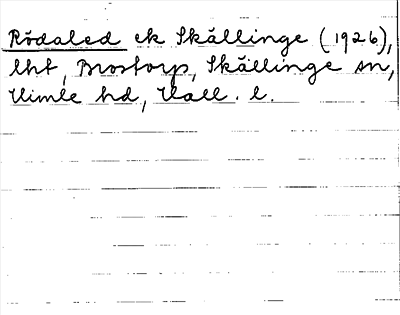 Rödaled ek Skällinge (1926),
lht, Brostorp, Skällinge sn,
Himle hd, Hall. l.